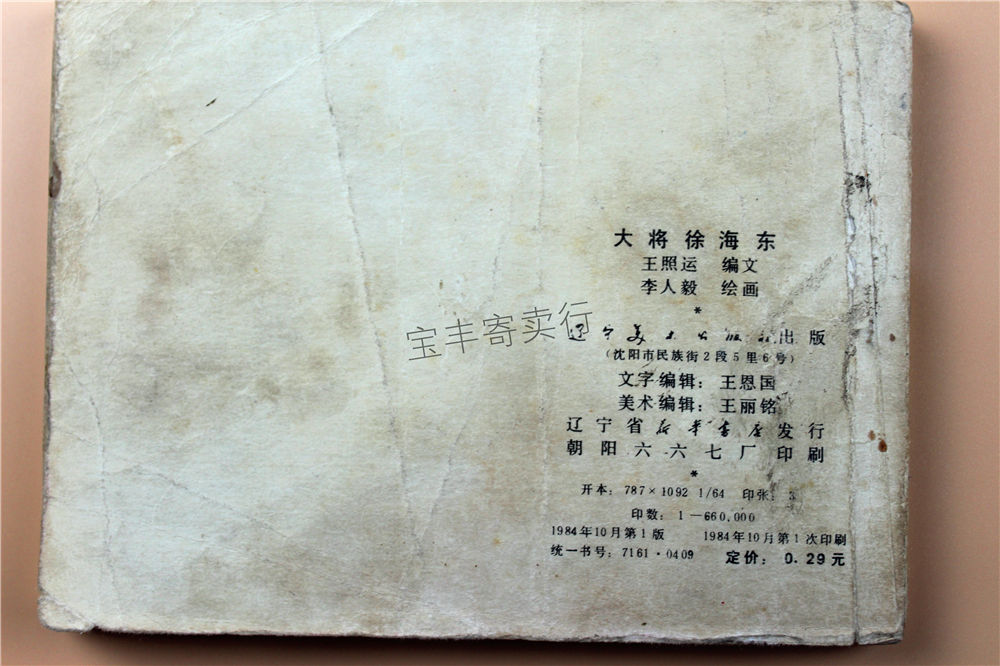 大将徐海东
王照运 编文
李人毅 绘画
*
辽宁美术出版社出版
(沈阳市民族街2段5里6号)
文字编辑：王恩国
美术编辑：王丽铭
辽宁省新华书店发行
朝阳六六七厂印刷
*
开本：787×1092 1/64 印张：3
印数：1—660,000
1984年10月第1版 1984年10月第1次印刷
统一书号：7161·0409 定价：0.29元
宝丰寄卖行